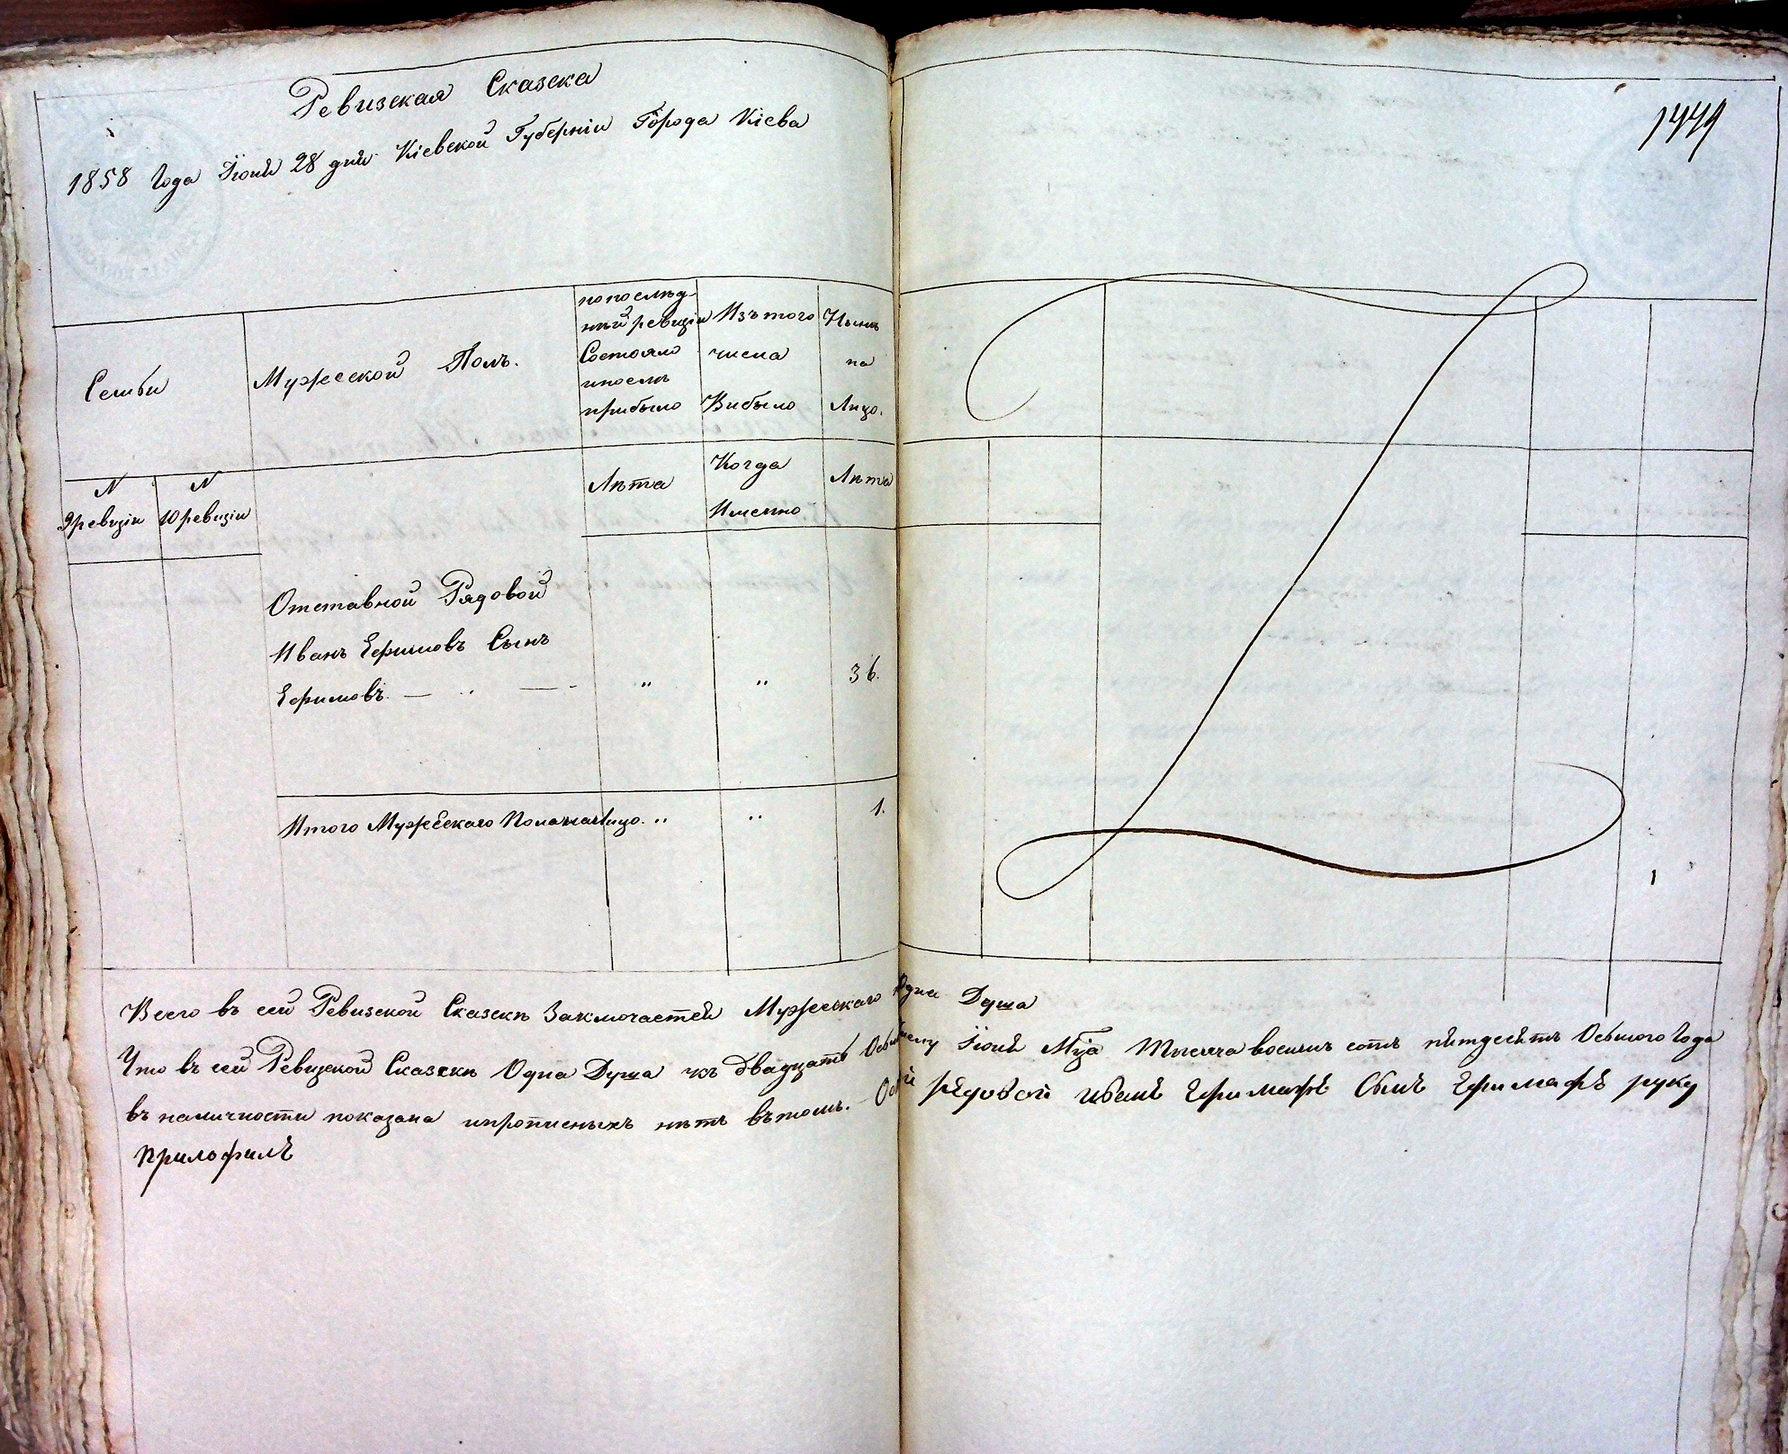 Ревизская Сказска
1858 Года Іюня 28 дня Кіевской Губерніи Города Кіева
1449
Семьи
Мужеской Полъ.
по послѣд-
ней ревизіи
Состояло
и послѣ
прибыло
Изъ того
числа
Выбыло
Нынѣ
на
Лицо.
N
9 ревизіи
N
10 ревизіи
Лѣта
Когда
Именно
Лѣта
Отставной Рядовой
Иванъ Ефимовъ Сынъ
Ефимовъ. — " — " " 36.
Итого Мужескаго Пола на лицо. " " 1.
1
Всего въ сей Ревизской Сказскѣ Заключается Мужескаго Одна Душа
Что въ сей Ревизской Сказскѣ Одна Душа къ двадцать Осьмому Іюня Мца Тысяча восемь сотъ пятдесятъ Осьмого Года
въ наличности показана и прописныхъ нѣтъ въ томъ. рядовой иване Ефимафъ Сынъ Ефимафъ руку
прилофилъ